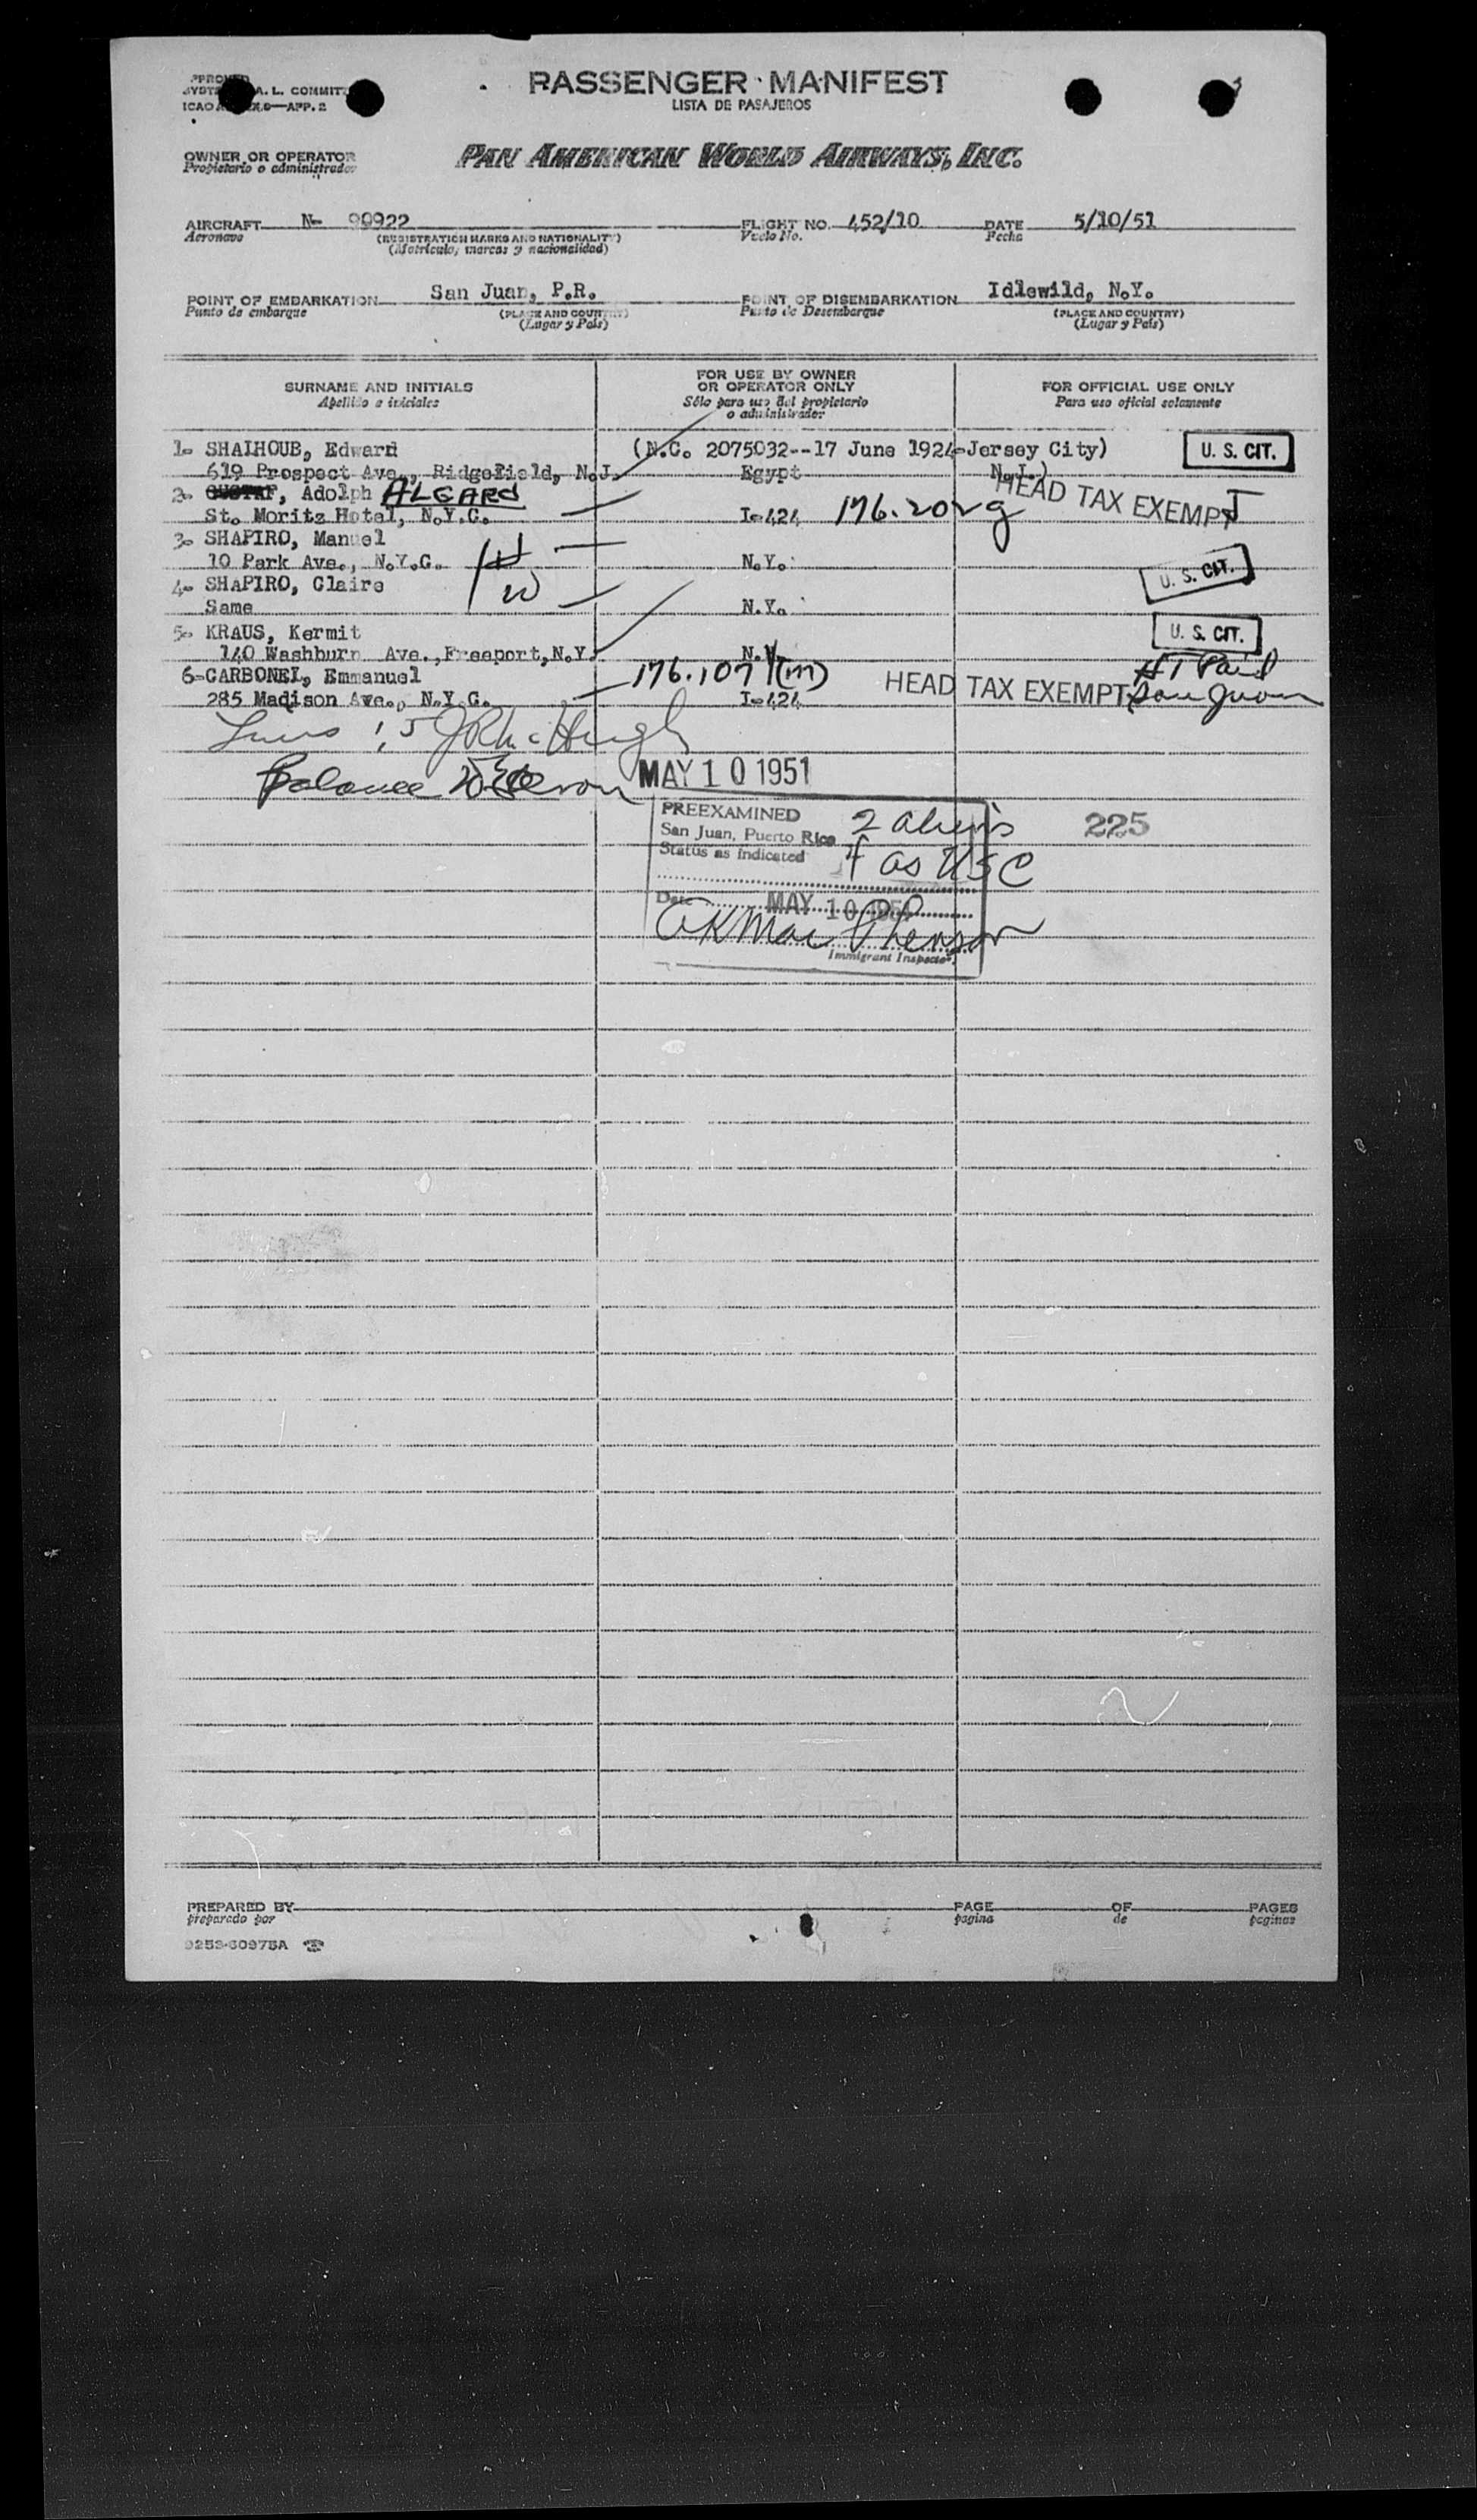 PASSENGER MANIFEST
LISTA DE PASAJEROS
A. L. COMMIT
ICAO APP. 2
OWNER OR OPERATOR
Propietario o administrador
PAN AMERICAN WORLD AIRWAYS, INC.
AIRCRAFT N- 90922 FLIGHT NO. 452/10 DATE 5/10/51
Aeronave (REGISTRATION MARKS AND NATIONALITY) Vuelo No. Fecha
(Matrícula, marcas y nacionalidad)
POINT OF EMBARKATION San Juan, P.R. POINT OF DISEMBARKATION Idlewild, N.Y.
Punto de embarque (PLACE AND COUNTRY) Punto de Desembarque (PLACE AND COUNTRY)
(Lugar y País) (Lugar y País)
SURNAME AND INITIALS FOR USE BY OWNER OR OPERATOR ONLY FOR OFFICIAL USE ONLY
Apellido e iniciales Sólo para uso del propietario o administrador Para uso oficial solamente
1- SHALHOUB, Edward (N.C. 2075032--17 June 1924-Jersey City) U. S. CIT.
619 Prospect Ave., Ridgefield, N.J. Egypt N.J.)
2- GUSTAF, Adolph ALGARD HEAD TAX EXEMPT
St. Moritz Hotel, N.Y.C. I-424 176.202 g
3- SHAPIRO, Manuel H
10 Park Ave., N.Y.C. N.Y. U. S. CIT.
4- SHAPIRO, Claire W
Same N.Y.
5- KRAUS, Kermit U. S. CIT.
140 Washburn Ave., Freeport, N.Y. N.Y.
6-CARBONEL, Emmanuel 176.107 (m) HT Paid
285 Madison Ave., N.Y.C. I-424 HEAD TAX EXEMPT San Juan
1,5 J R McHugh
Balance
MAY 10 1951
PREEXAMINED 2 aliens 225
San Juan, Puerto Rico
Status as indicated 4 as USC
Date MAY 10 1951
A K MacPherson
Immigrant Inspector
PREPARED BY PAGE OF PAGES
preparado por pagina de paginas
9253-60975A